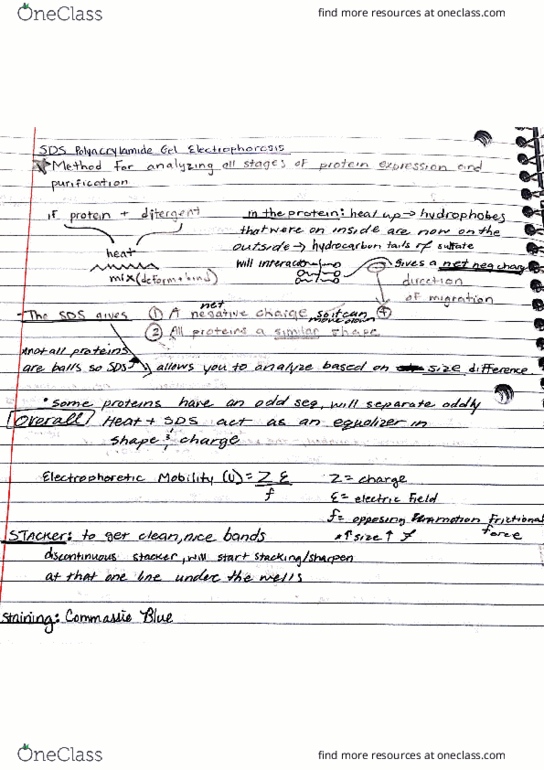 OneClass
find more resources at oneclass.com
SDS Polyacrylamide Gel Electrophoresis
Method for analyzing all stages of protein expression and
purification
if protein + ditergent
heat
mix (deform + bind)
in the protein: heat up → hydrophobes
that were on inside are now on the
outside → hydrocarbon tails of sulfate
will interact
Gives a net neg charge
direction
of migration
- The SDS gives
① A net negative charge so it can move down
② All proteins a similar shape
*not all proteins
are balls so SDS allows you to analyze based on size difference
• some proteins have an odd seq, will separate oddly
Overall Heat + SDS act as an equalizer in
shape & charge
Electrophoretic Mobility (U) = Z Ɛ
f
Z = charge
Ɛ = electric field
f = opposing frictional
force
*↑ size ↑ f
STACKER: to get clean, nice bands
discontinuous stacker, will start stacking/sharpen
at that one line under the wells
Staining: Commassie Blue
OneClass
find more resources at oneclass.com